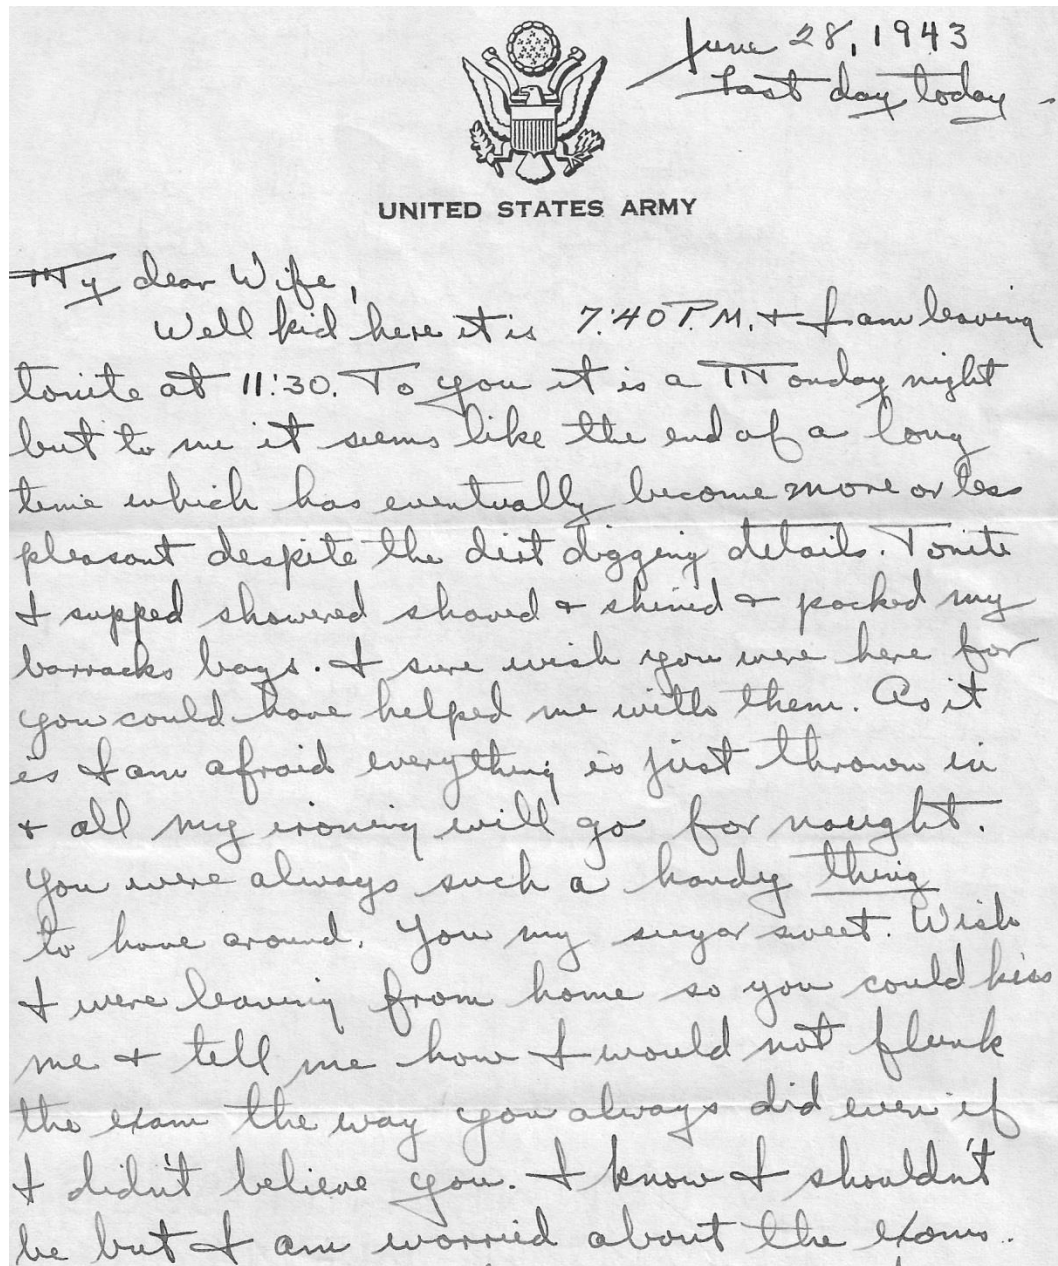 June 28, 1943
Last day today -
UNITED STATES ARMY
My dear Wife,
Well kid here it is 7:40 P.M. + I am leaving
tonite at 11:30. To you it is a Monday night
but to me it seems like the end of a long
time which has eventually become more or less
pleasant despite the dirt digging details. Tonite
I supped showered shaved + shined + packed my
barracks bags. I sure wish you were here for
you could have helped me with them. As it
is I am afraid everything is just thrown in
+ all my ironing will go for naught.
You were always such a handy thing
to have around. You my sugar sweet. Wish
I were leaving from home so you could kiss
me + tell me how I would not flunk
the exam the way you always did even if
I didn't believe you. I know I shouldn't
be but I am worried about the exams.